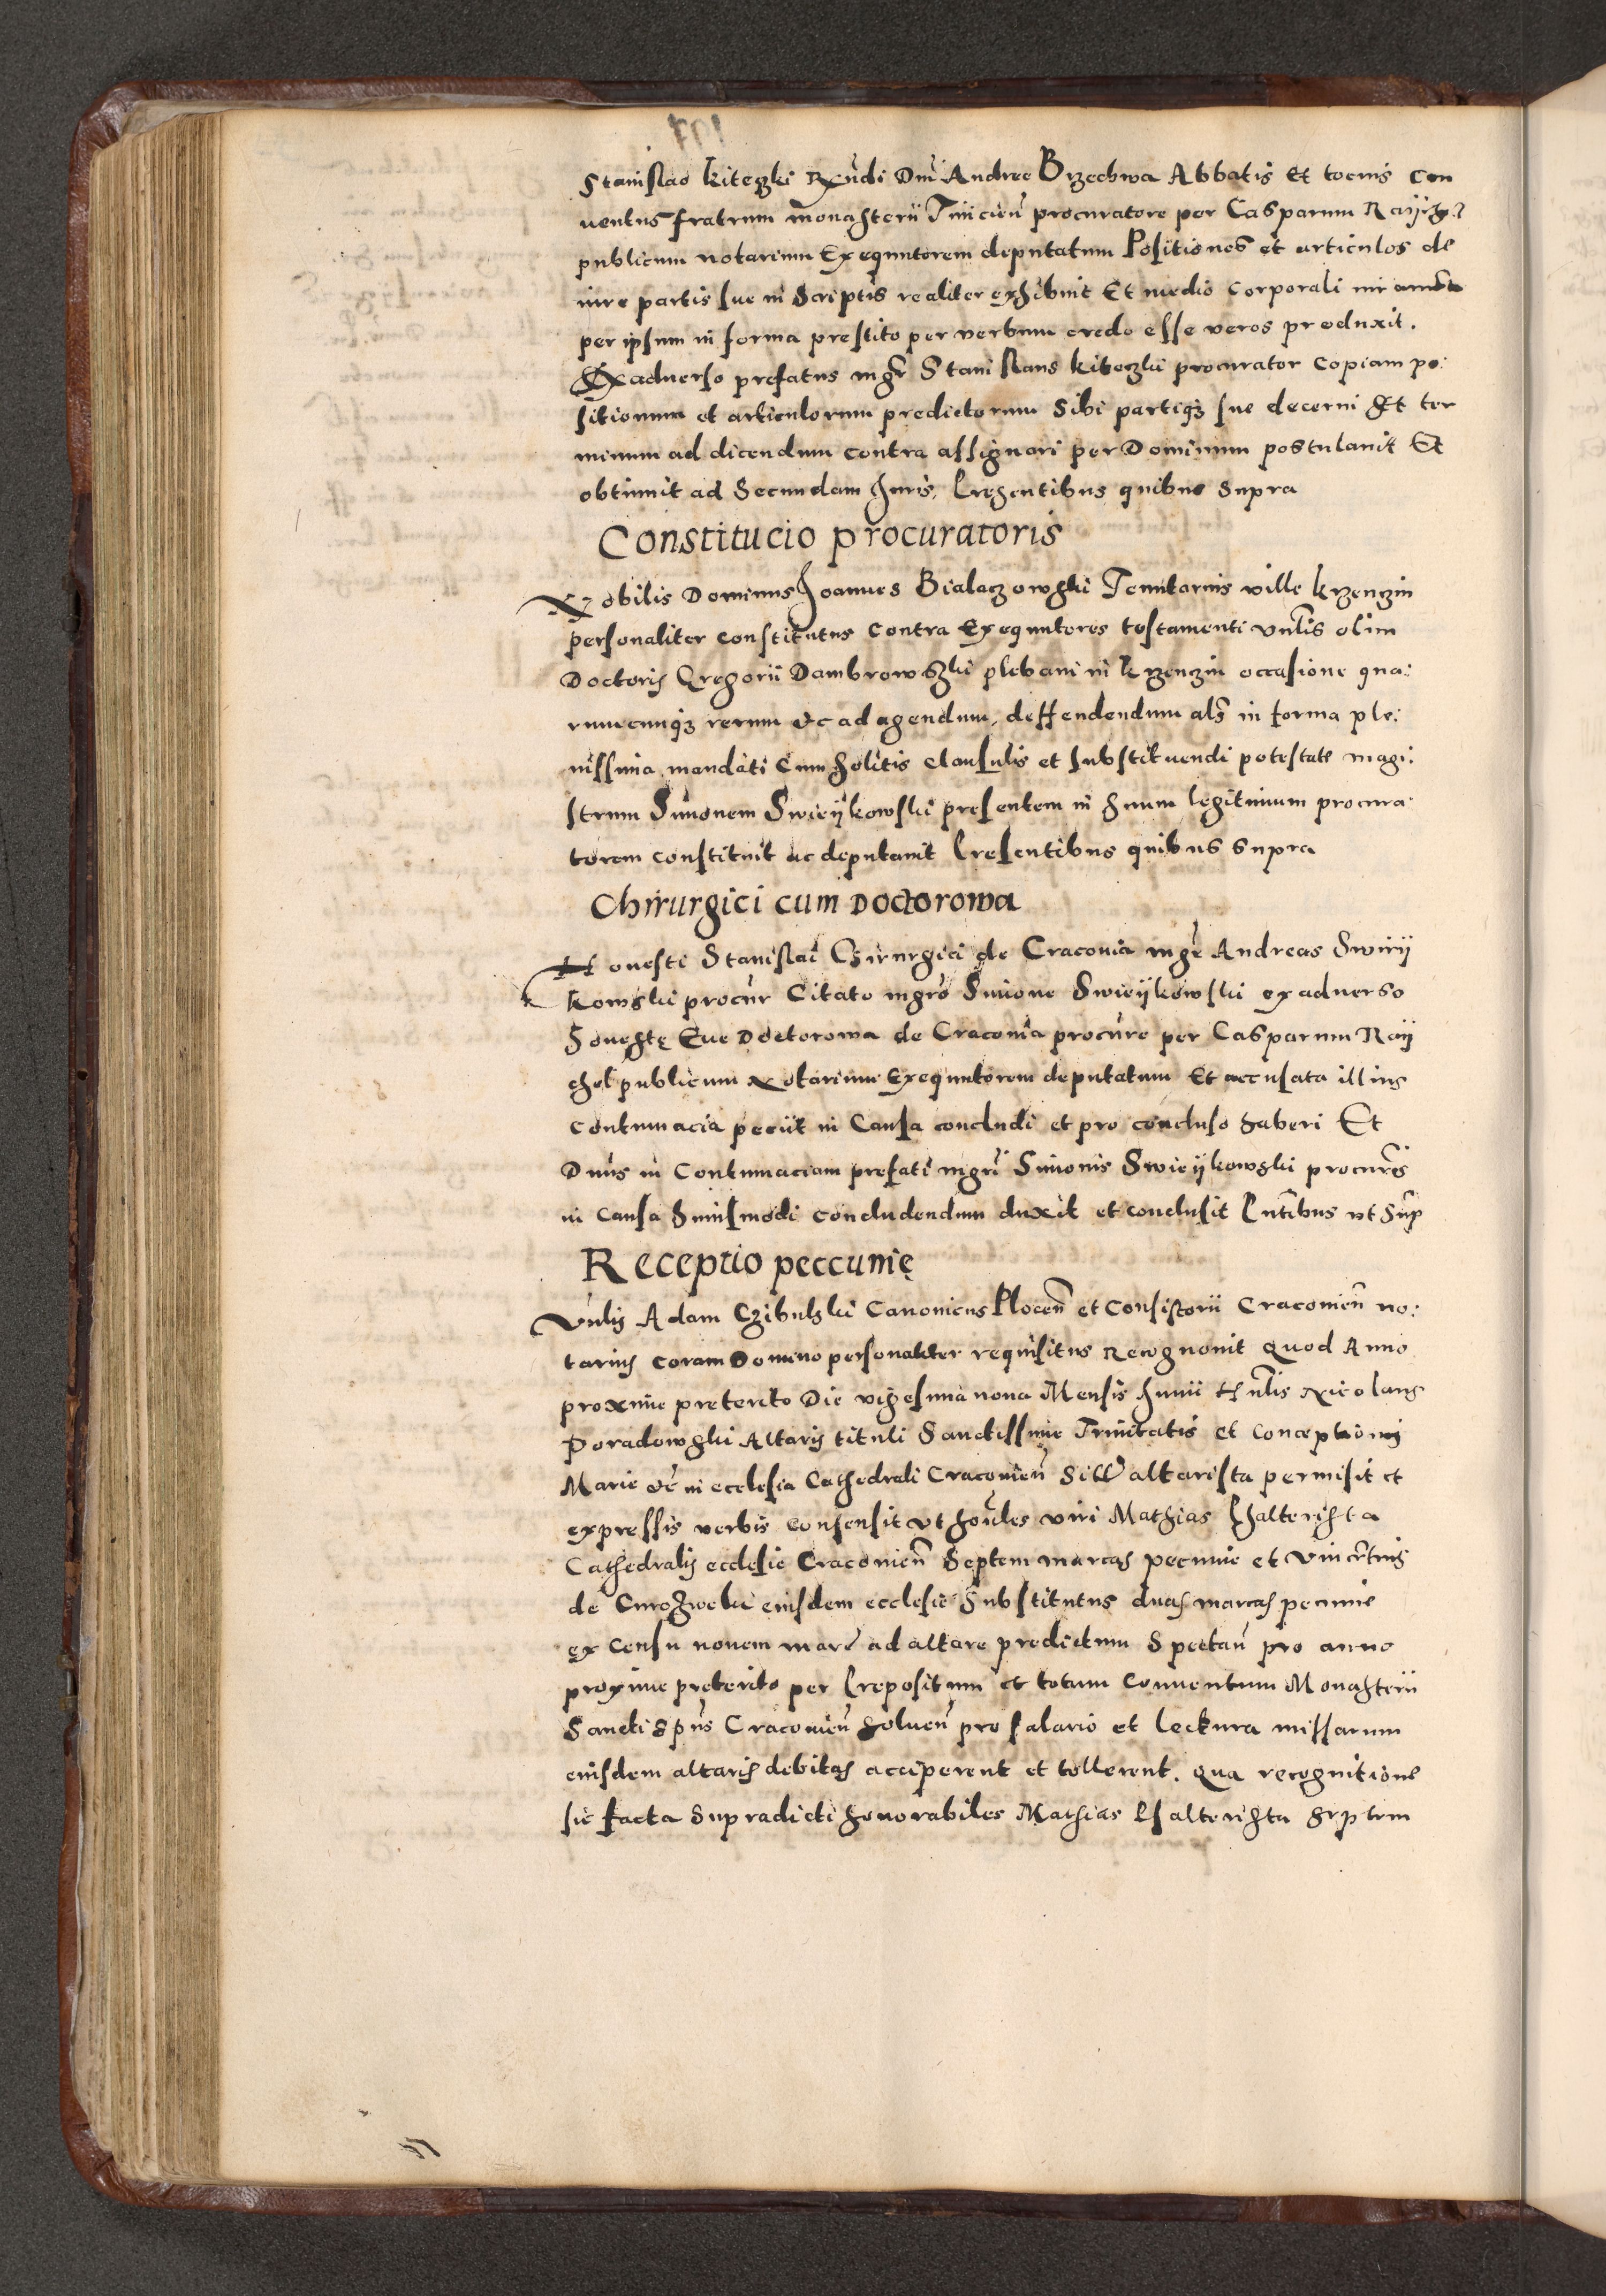 Stanislao kiteczki Rendi Dni Andree Brzechwa Abbatis Et tocius Con
uentus fratrum monasterii Tinicien procuratore per Casparum
publicum notarium Exequutorem deputatum Positiones et articulos de
iure partis sue in Scriptis realiter exhibuit Et medio corporali iuramto
per ipsum in forma prestito per verbum credo esse veros produxit.
Ex aduerso prefatus mgr Stanislaus kiteczki procurator copiam po:
sitionum et articulorum predictorum Sibi partiqz sue decerni Et ter
minum ad dicendum contra assignari per Dominum postulauit Et
obtinuit ad Secundam Iuris, Presentibus quibus supra
Constitucio procuratoris
Nobilis Dominus Joannes Bialaczowski Tenutarius ville krzenczin
personaliter constitutus contra Exequutores testamenti vnlis olim
Doctoris Gregorii Dambrowski plebani in krzenczin occasione qua:
rumcunqz rerum &c ad agendum, deffendendum als in forma ple:
nissima mandati Cum solitis clausulis et substituendi potestate magi:
strum Simonem Swieykowski presentem in suum legitimum procura:
torem constituit ac deputauit Presentibus quibus supra
Chirurgici cum Doctorowa
Honesti Stanislai Chirurgici de Craconia mgr Andreas Swiey
kowski procur Citato mgro Simone Swieykowski ex aduerso
honestę Eue Doctorowa de Craconia procure per Casparum Ray
chel publicum Notarium Exequutorem deputatum Et accusata illius
contumacia peciit in Causa concludi et pro concluso haberi Et
Dnus in Contumaciam prefati mgri Simonis Swieykowski procures
in Causa huiusmodi concludendum duxit et conclusit Pntibus vt sup
Receptio peccunię
Vnlis Adam Czibulski Canonicus Plocen et Consistorii Cracouien no:
tarius coram Domino personaliter requisitus Recognouit Quod Anno
proxime preterito Die vigesima nona Mensis Junii Hnlis Nicolaus
Poradowski Altaris tituli Sanctissime Trinitatis et Conceptionis
Marie &c in ecclesia Cathedrali Cracouien altarista permisit et
expressis verbis consensit vt honles viri Mathias Psalterista
Cathedralis ecclesie Cracouien Septem marcas pecunie et
de eiusdem ecclesie Substitutus duas marcas pecunie
ex Censu nouem marc ad altare predictum Spectan pro anno
proxime preterito per Prepositum et totum Conuentum Monasterii
Sancti Spus Cracouien soluen pro salario et lectura missarum
eiusdem altaris debitas acciperent et tollerent. Qua recognitione
sic facta Supradicti honorabiles Mathias Psalterista septem